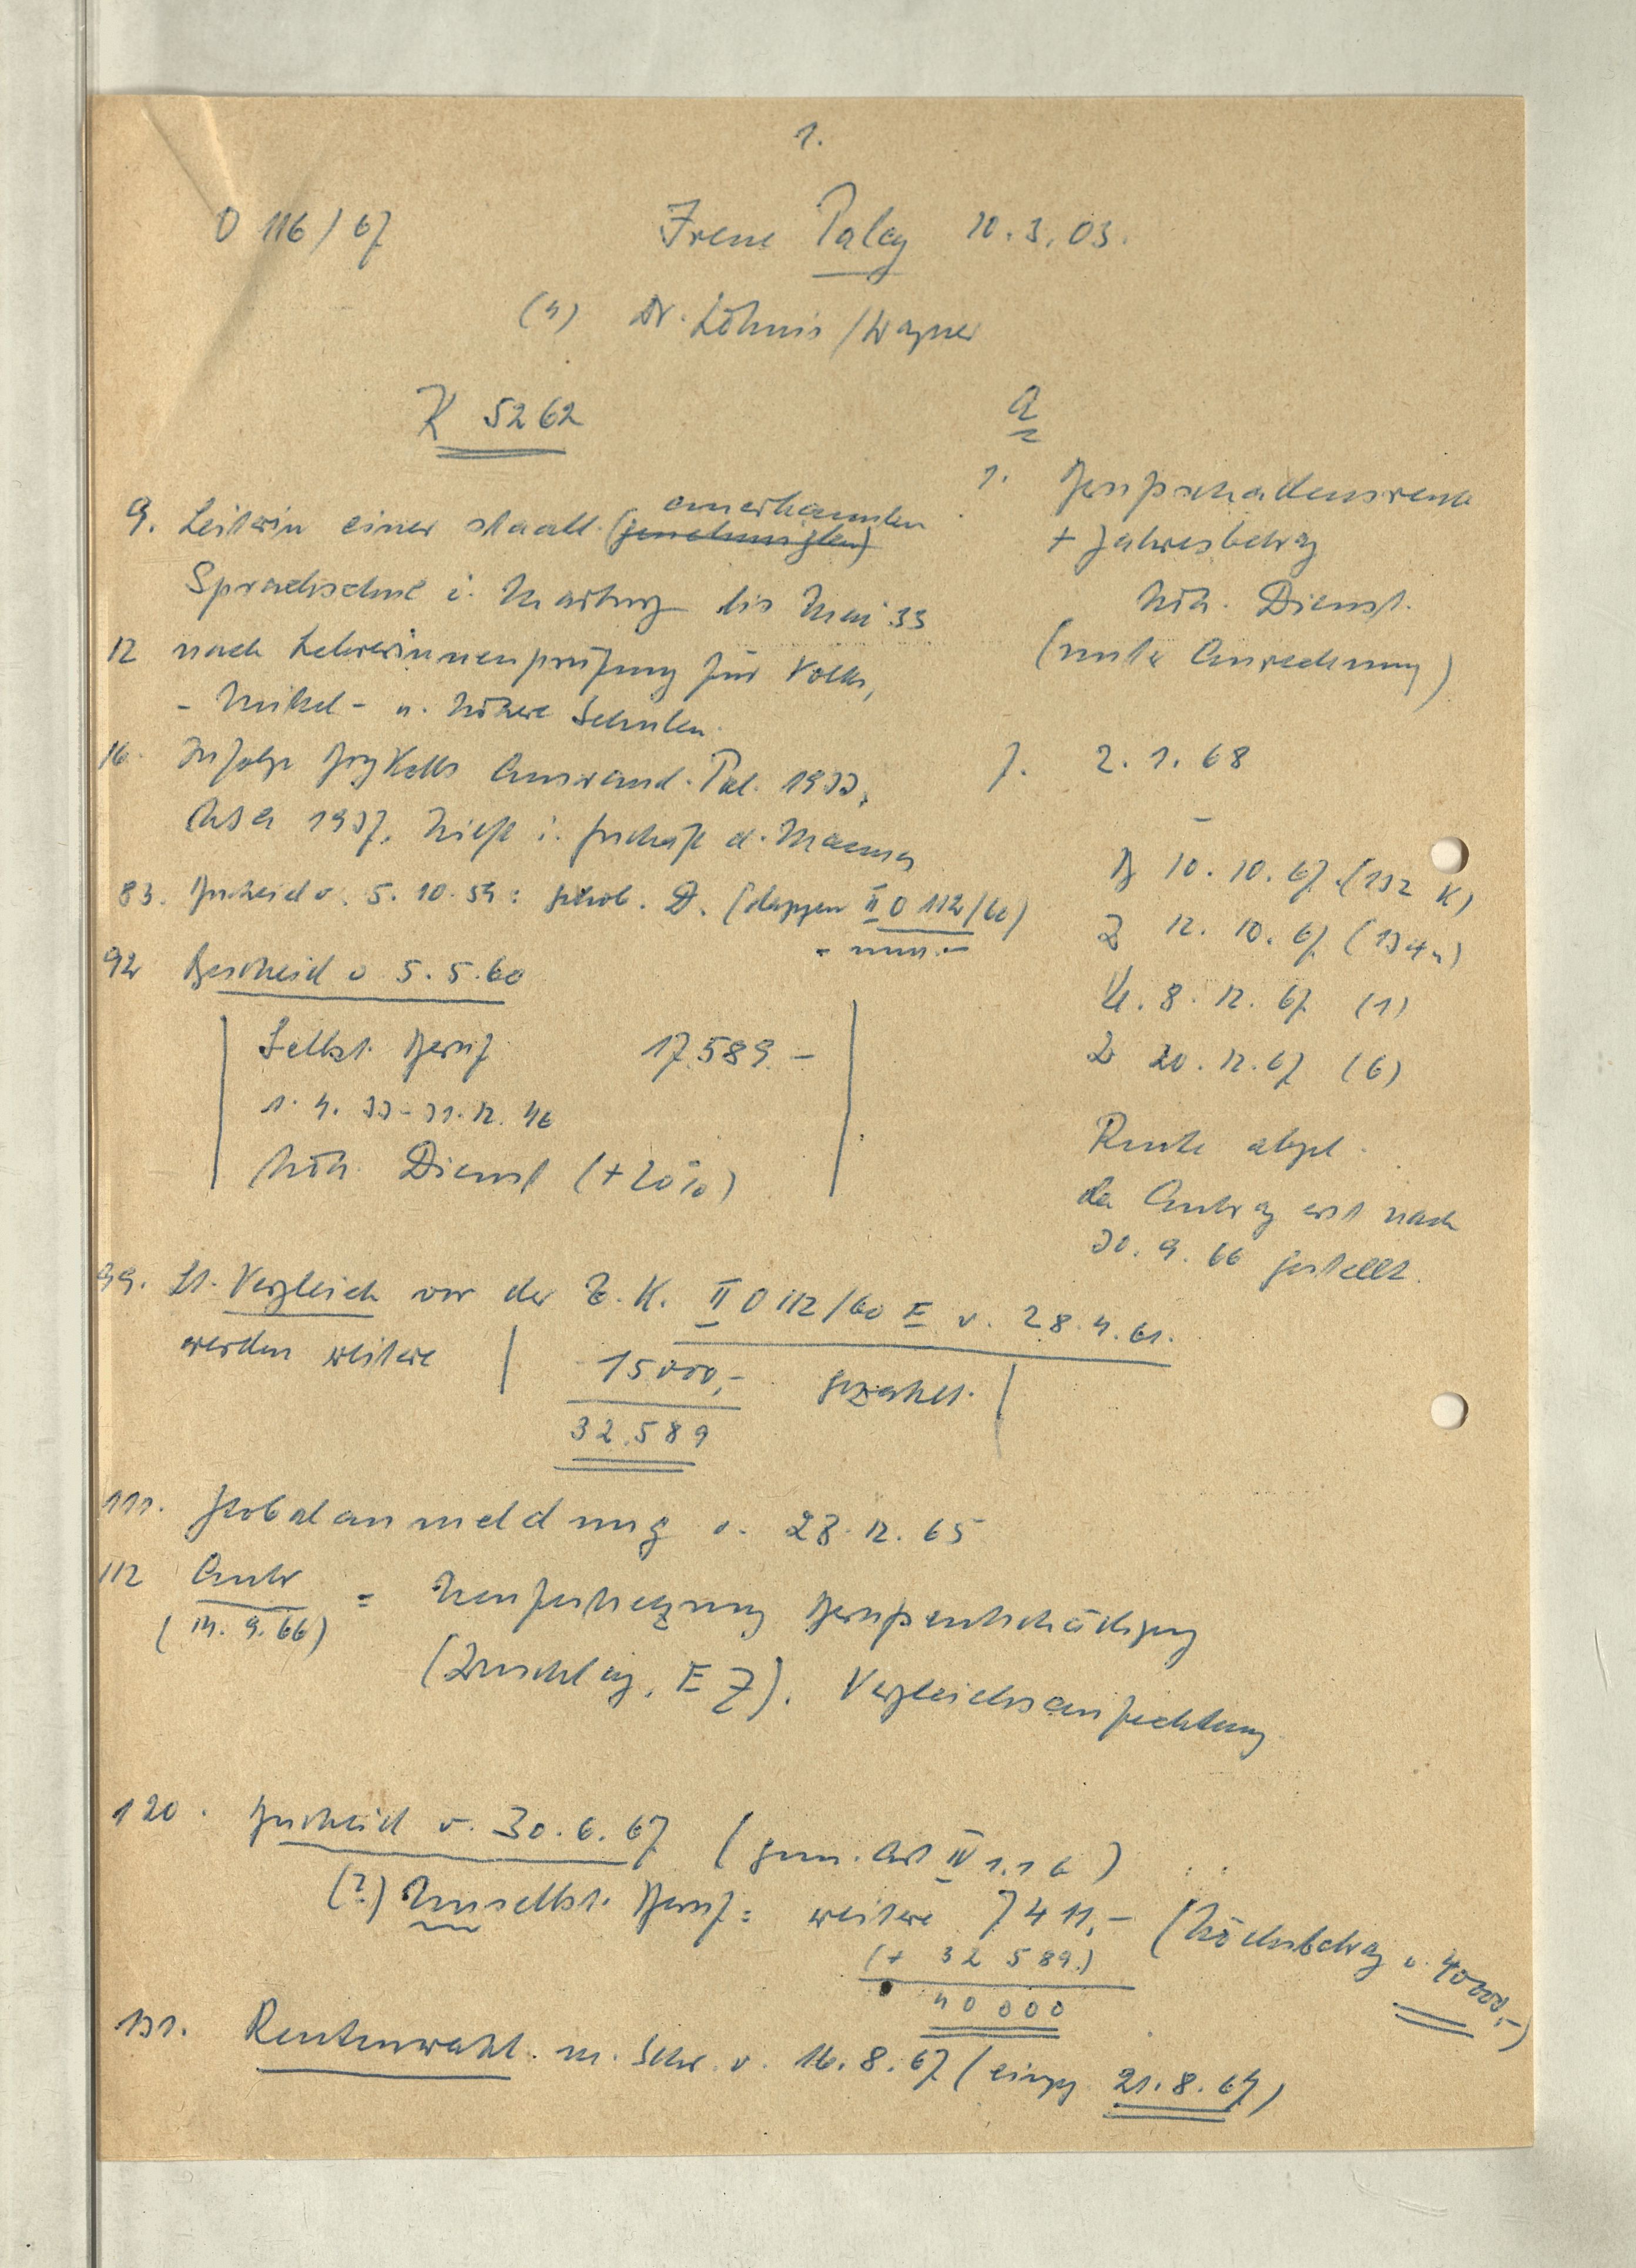 1.
O 116/67
Irene Paley 10.3.03.
(4) Dr. Löhnis / Wagner
K 5262
9. Leiterin einer staatl. (genehmigten) anerkannten
Sprachschule i. Marburg bis Mai 33
12 nach Lehrerinnenprüfung für Volks,
- Mittel- u. höhere Schulen.
16. Infolge Boykotts Auswand. Pal. 1933,
USA 1937. Hilft i. Geschäft d. Mannes
83. Bescheid v. 5.10.59: gehob. D. (dagegen II O 112/60)
92 Bescheid v 5.5.60
Selbst. Beruf 17.589.-
1.4.33-31.12.46
höh. Dienst (+20%)
99. Lt. Vergleich vor der E.K. II O 112/60 E v. 28.4.61.
werden weitere 15000,- gezahlt.
32.589
111. Globalanmeldung v. 28.12.65
112 Antr = Neufestsetzung Berufsentschädigung
(14.9.66)
(Zuschlag, EZ). Vergleichsanfechtung
120. Bescheid v. 30.6.67 (gem. Art IV 1.1 b)
(?) Unselbst. Beruf: weitere 7411,- (Höchstbetrag v. 40000,-)
(+ 32 589.)
40 000
131. Rentenwahl m. Schr. v. 16.8.67 (eingeg 21.8.67)
A
1. Berufsschadensrente
+ Jahresbetrag
höh. Dienst.
(unter Anrechnung)
7. 2.1.68
B 10.10.67 (132 K)
Z 12.10.67 (134 )
Kl. 8.12.67 (1)
Z 20.12.67 (6)
Rente abgel.
da Antrag erst nach
30.9.66 gestellt.